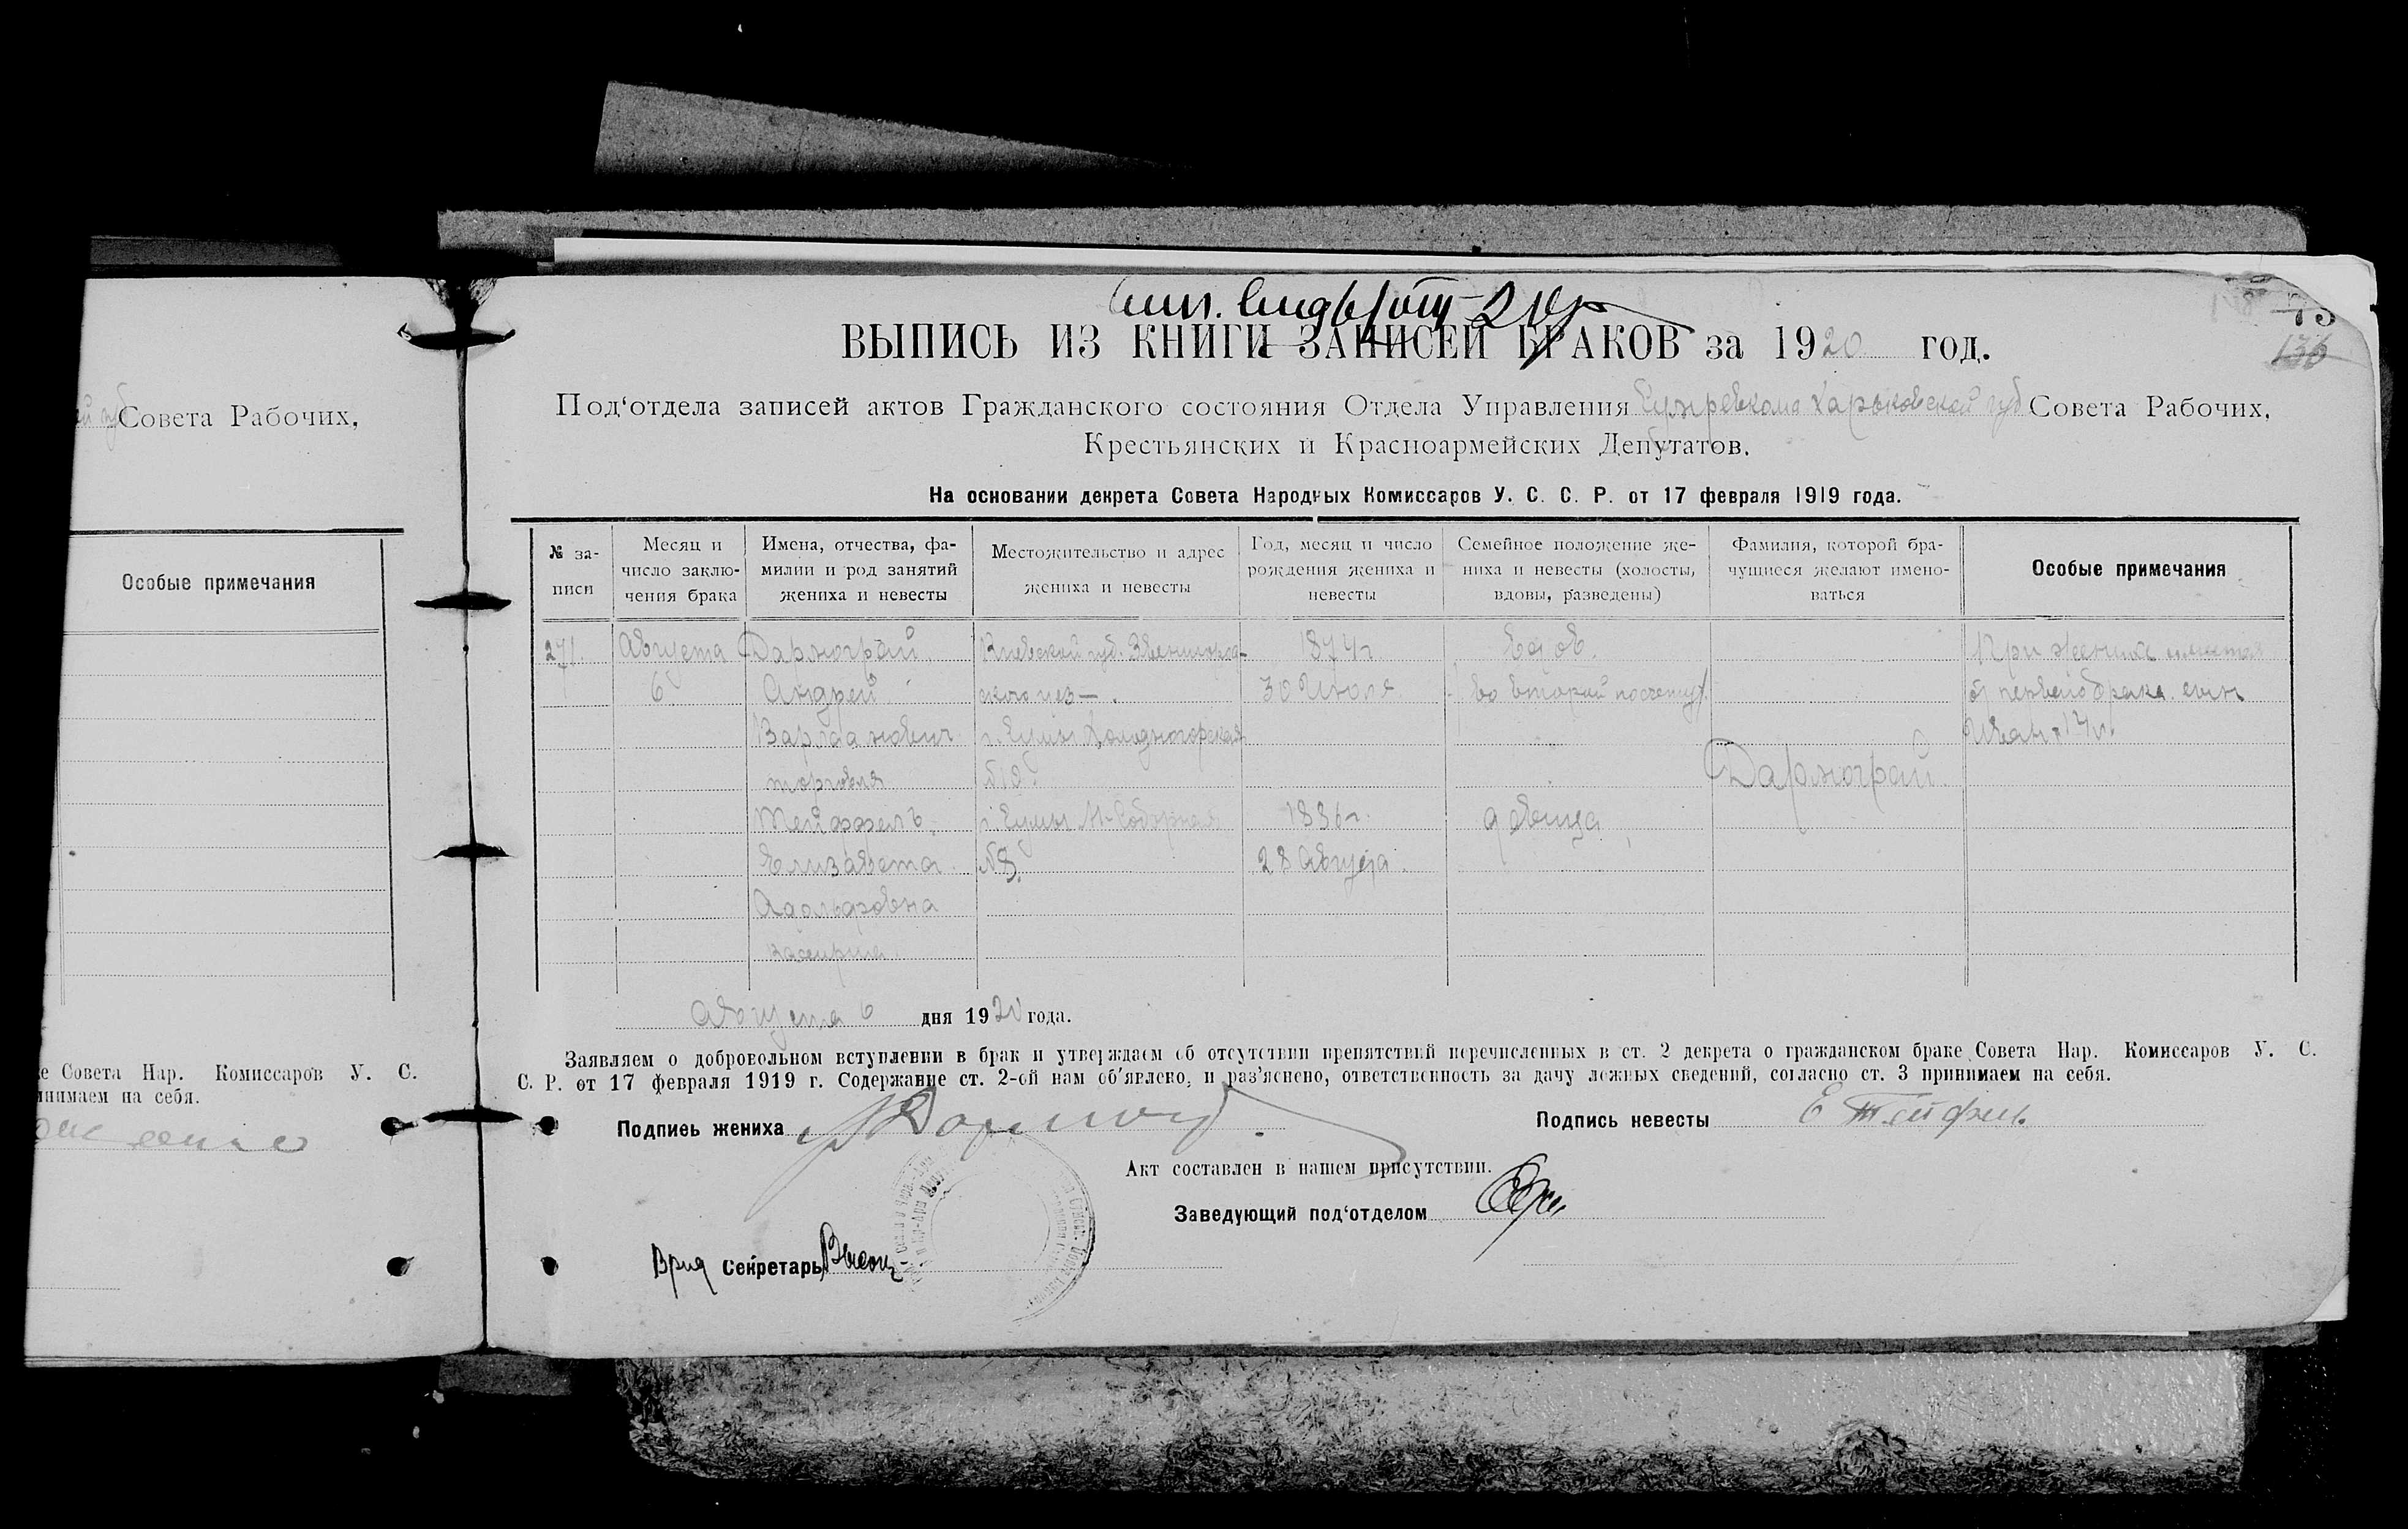 75
136
ВЫПИСЬ ИЗ КНИГИ ЗАПИСЕЙ БРАКОВ за 1920 год.
Под‘отдела записей актов Гражданского состояния Отдела Управления Сумревкома Харьковской губ Совета Рабочих,
Крестьянских и Красноармейских Депутатов.
На основании декрета Совета Народных Комиссаров У. С. С. Р. от 17 февраля 1919 года.
№ за-
писи
Месяц и
число заклю-
чения брака
Имена, отчества, фа-
милии и род занятий
жениха и невесты
Местожительство и адрес
жениха и невесты
Год, месяц и число
рождения жениха и
невесты
Семейное положение же-
ниха и невесты (холосты,
вдовы, разведены)
Фамилия, которой бра-
чущиеся желают имено-
ваться
Особые примечания
271.
Августа
6
Дармограй
Андрей
Варлаамович
торговля
Киевской губ. Звенигород-
ского уез-
г. Сумы Холодногорская
1874 г.
30 Июля
вдов.
во второй по счету
Дармограй.
При женихе имеется
от первого брака сын
Иван 14 л.
Тейффель
Елизавета
Адольфовна
кассирша.
г. Сумы М-Соборная
№8.
1886 г.
28 Августа.
девица
Августа 6 дня 1920 года.
Заявляем о добровольном вступлении в брак и утверждаем об отсутствии препятствий перечисленных в ст. 2 декрета о гражданском браке Совета Нар. Комиссаров У. С.
С. Р. от 17 февраля 1919 г. Содержание ст. 2-ой нам об‘явлено, и раз‘яснено, ответственность за дачу ложных сведений, согласно ст. 3 принимаем на себя.
Подпись жениха
Подпись невесты Е Тейфель
Акт составлен в нашем присутствии.
Заведующий под‘отделом
Врид Секретарь
Совета Рабочих,
Особые примечания
Совета Нар. Комиссаров У. С.
на себя.